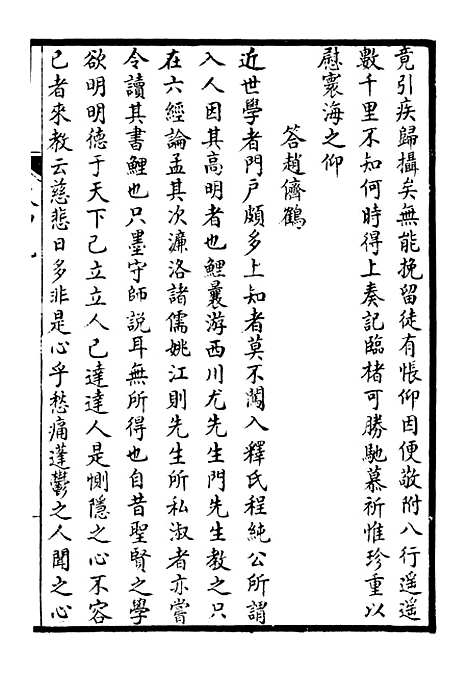 竟引疾歸攝矣無能挽留徒有悵仰因便敬附八行遥遥
數千里不知何時得上奏記臨楮可勝馳慕祈惟珍重以
慰寰海之仰
答趙儕鶴
近世學者門户頗多上知者莫不闖入釋氏程純公所謂
入人因其高明者也鯉曩游西川尤先生門先生教之只
在六經論孟其次濂洛諸儒姚江則先生所私淑者亦嘗
令讀其書鯉也只墨守師説耳無所得也自昔聖賢之學
欲明明德于天下己立立人己達達人是惻隱之心不容
已者來教云慈悲日多非是心乎愁痛蓬鬱之人聞之心